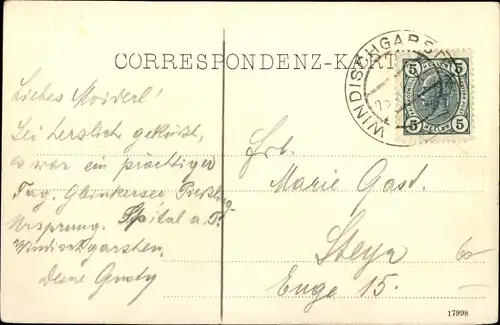 CORRESPONDENZ-KARTE
WINDISCHGARSTEN
5 5
HELLER
Liebes Moiderl!
Sei herzlich geküßt,
es war ein prächtiger
Tag. Gleinkersee Pießling
Ursprung. Spital a. P.
Windischgarsten.
Deine
Frl.
Marie Gast.
Steyr
Enge 15.
17998